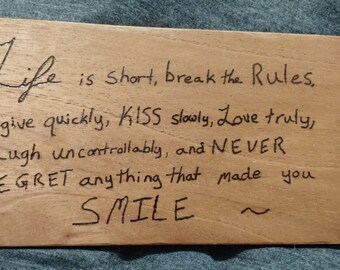 Life is short, break the Rules,
give quickly, KISS slowly, Love truly,
ugh uncontrollably, and NEVER
EGRET anything that made you
SMILE ~